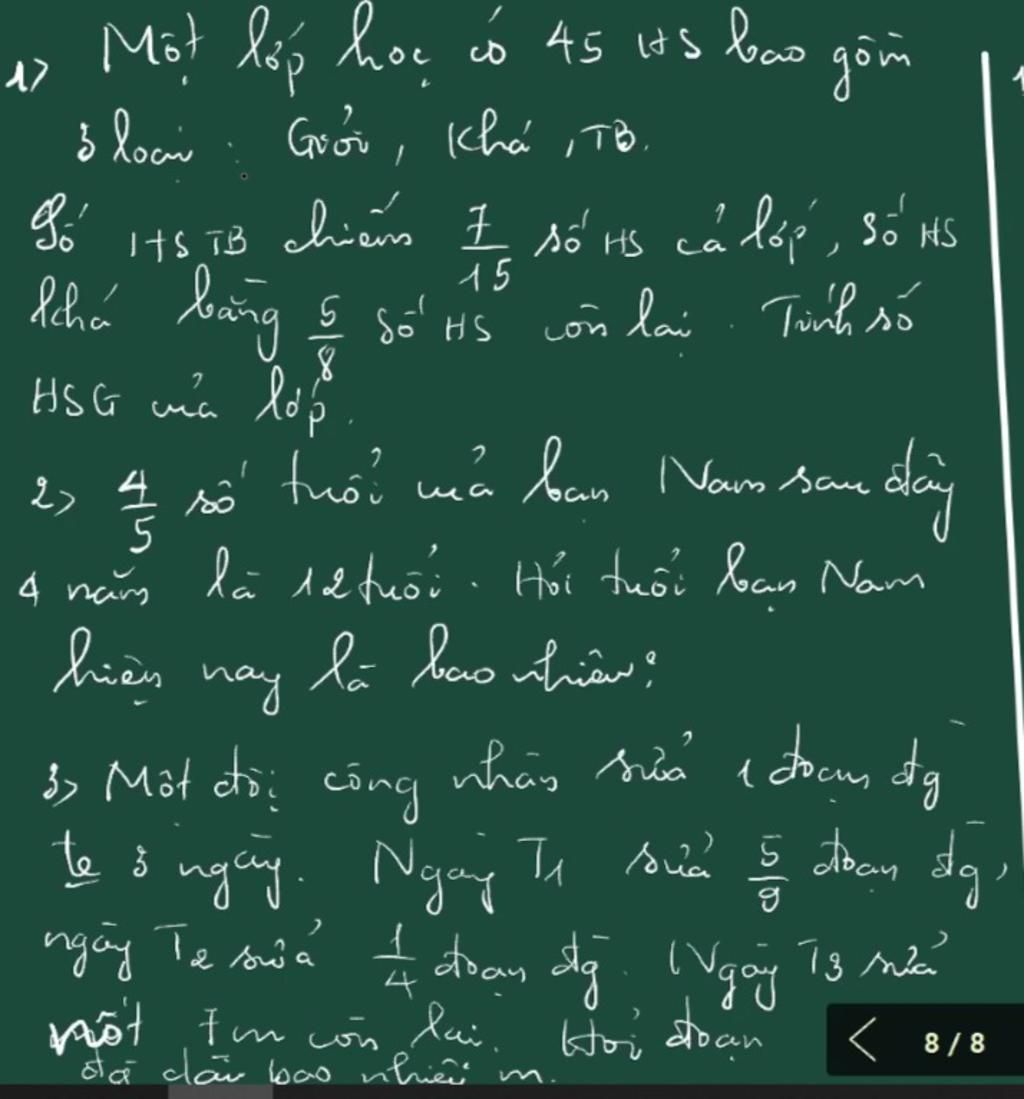 1) Một lớp học có 45 HS bao gồm
3 loại : Giỏi, Khá, TB.
Số HS TB chiếm 7/15 số HS cả lớp, số HS
khá bằng 5/8 số HS còn lại. Tính số
HSG của lớp.
2) 4/5 số tuổi của bạn Nam sau đây
4 năm là 12 tuổi. Hỏi tuổi bạn Nam
hiện nay là bao nhiêu?
3) Một đội công nhân sửa 1 đoạn đg
te 3 ngày. Ngày T1 sửa 5/9 đoạn đg,
ngày T2 sửa 1/4 đoạn đg. Ngày T3 sửa
nốt 7m còn lại. Hỏi đoạn
đg dài bao nhiêu m.
< 8 / 8